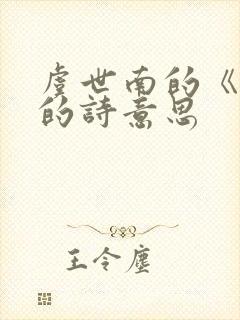 虞世南的《
的詩意思
王令塵